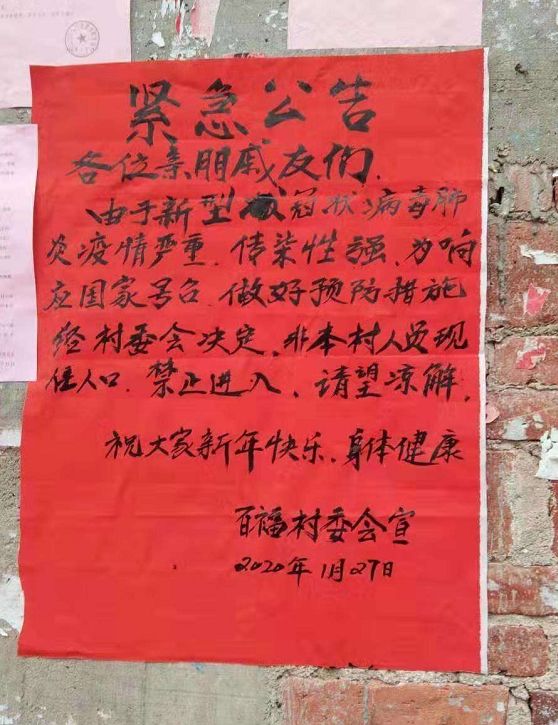 紧急公告
各位亲朋戚友们.
由于新型冠状病毒肺
炎疫情严重.传染性强.为响
应国家号召.做好预防措施
经村委会决定、非本村人员现
住人口.禁止进入、请望凉解.
祝大家新年快乐.身体健康
百福村委会宣
2020年1月27日